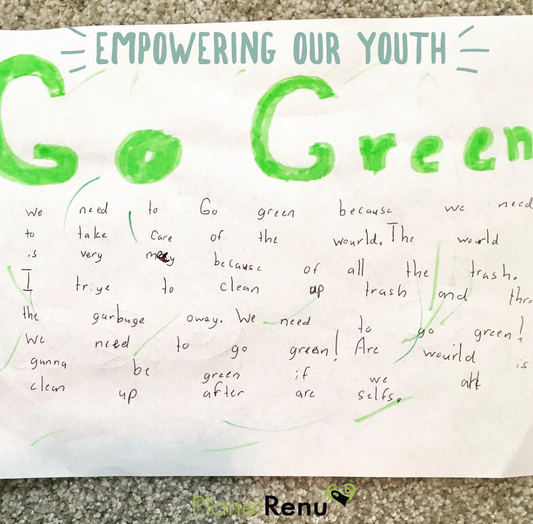 EMPOWERING OUR YOUTH
Go Green
we need to Go green because we need
to take care of the wourld. The world
is very messy because of all the trash.
I triye to clean up trash and thro
the garbuge away. We need to go green!
We need to go green! Are wourld is
gunna be green if we all
clean up after are selfs.
PlanetRenu